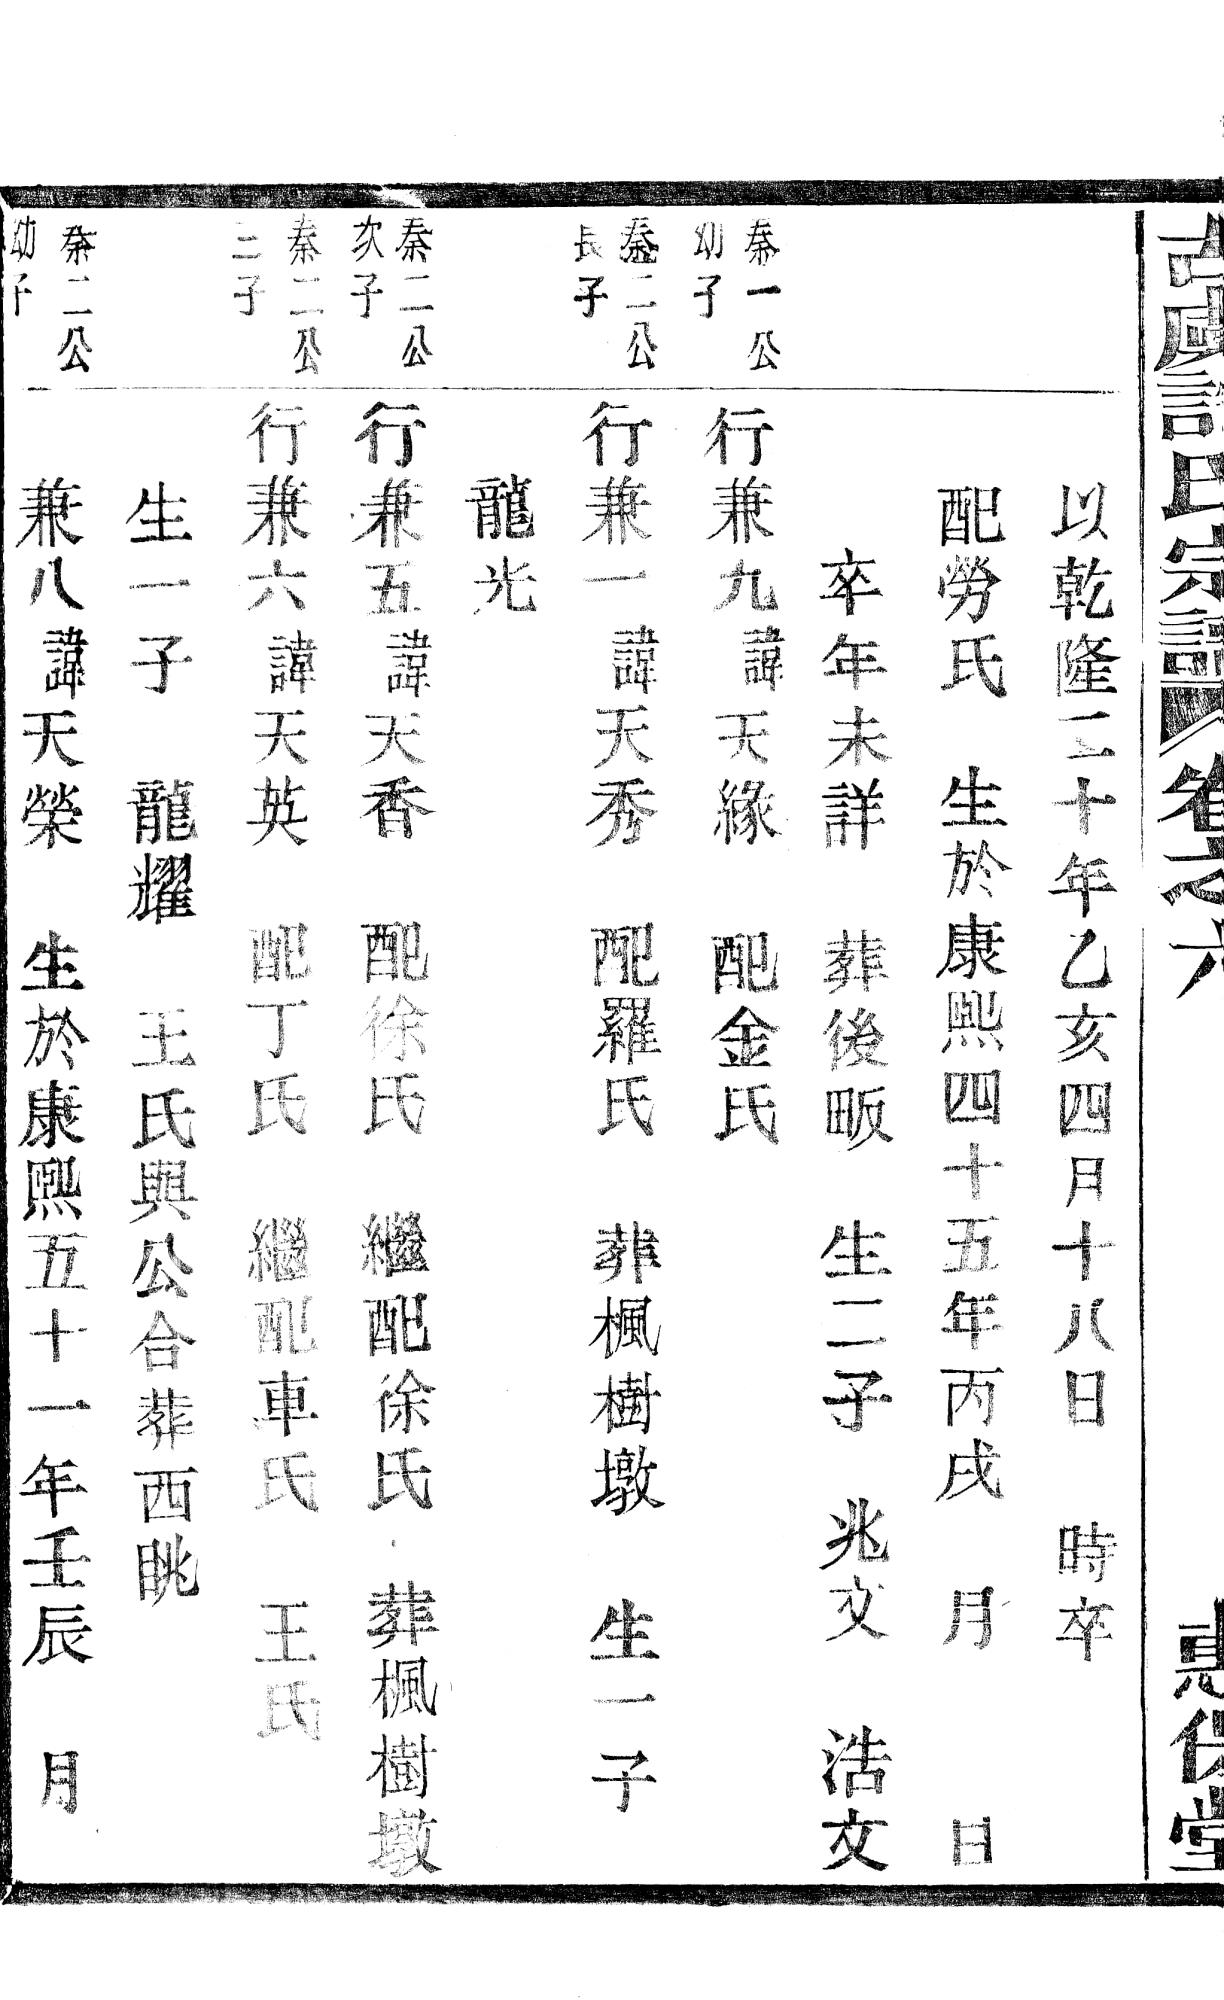 古虞 氏宗譜 卷之六 惠保堂
以乾隆二十年乙亥四月十八日 時卒
配勞氏 生於康熙四十五年丙戌 月 日
卒年未詳 葬後畈 生二子 兆文 浩文
秦一公
幼子
行兼九諱天緣 配金氏
秦二公
長子
行兼一諱天秀 配羅氏 葬楓樹墩 生一子
龍光
秦二公
次子
行兼五諱天香 配徐氏 繼配徐氏 葬楓樹墩
秦二公
三子
行兼六諱天英 配丁氏 繼配車氏 王氏
生一子 龍耀 王氏與公合葬西眺
秦二公
幼子
兼八諱天榮 生於康熙五十一年壬辰 月